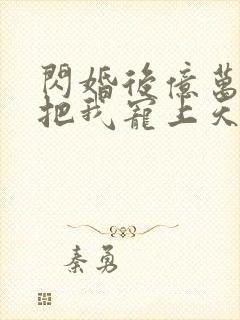 閃婚後億萬
把我寵上天
秦勇